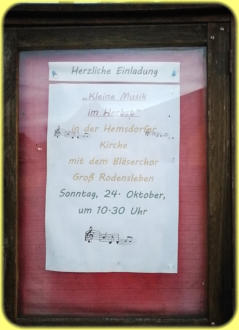 Herzliche Einladung
„Kleine Musik
im Herbst“
in der Hemsdorfer
Kirche
mit dem Bläserchor
Groß Rodensleben
Sonntag, 24. Oktober,
um 10.30 Uhr